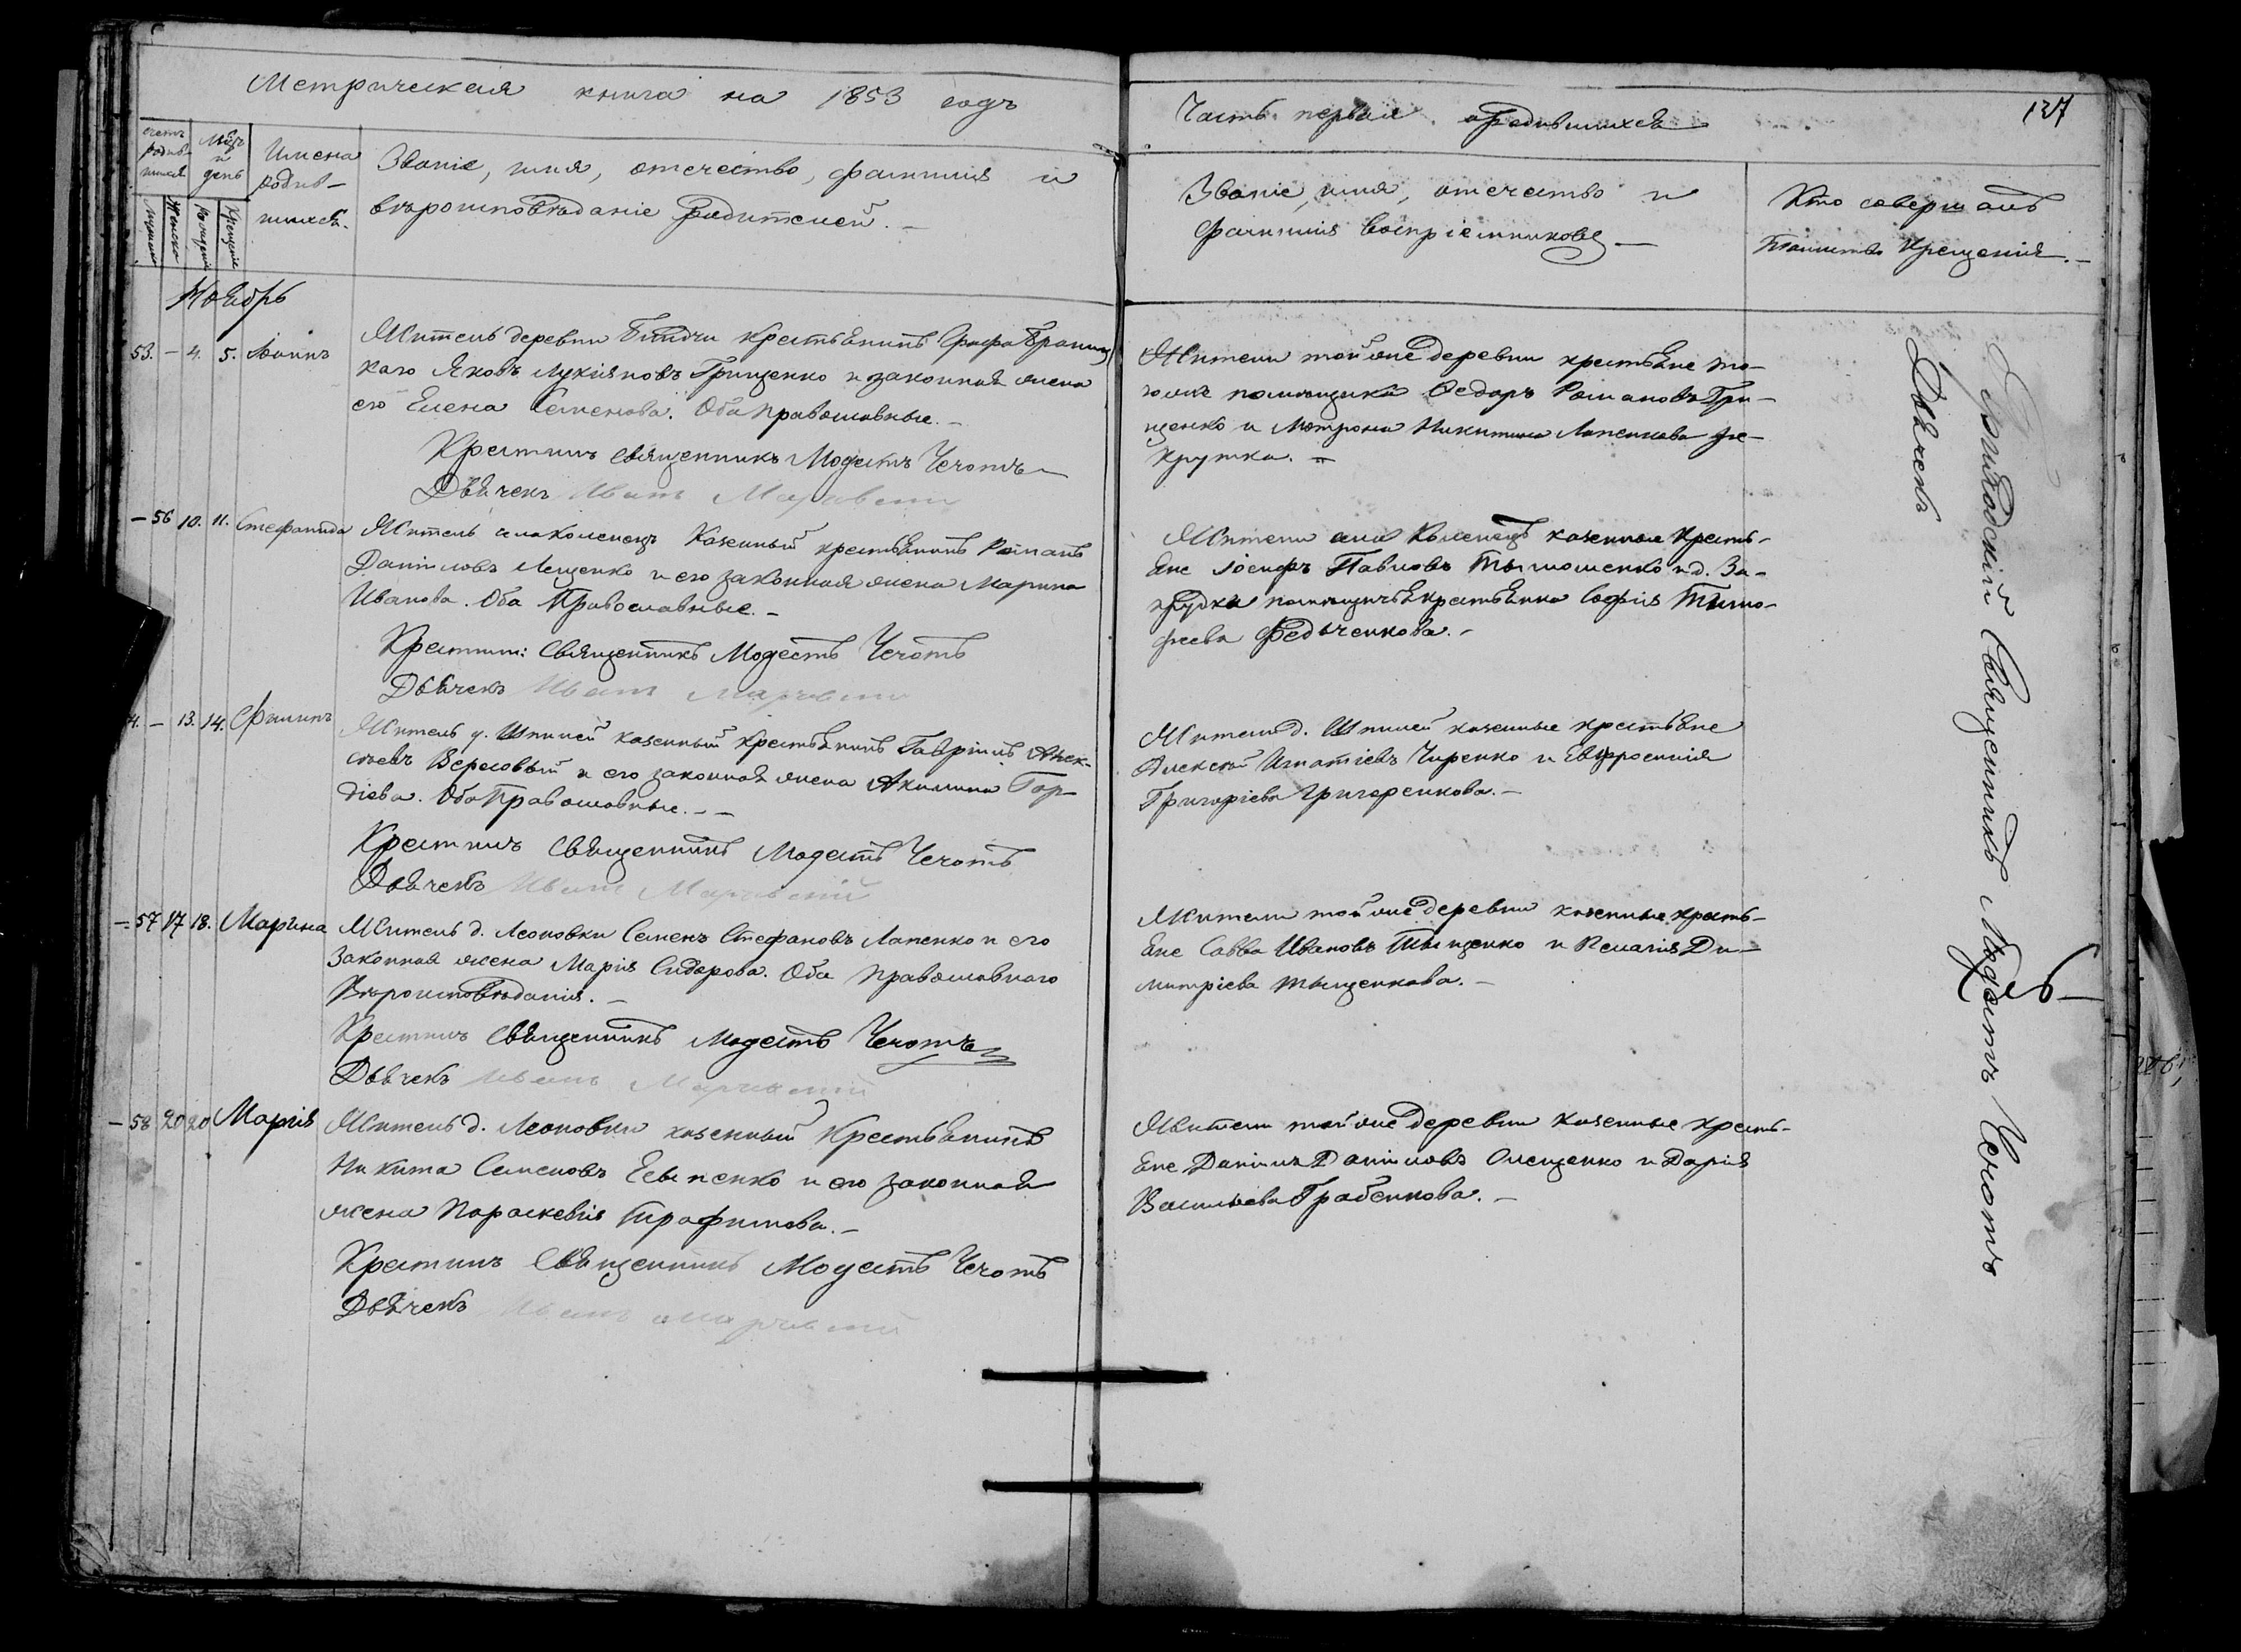 Метрическая книга на 1853 годъ
Часть первая о родившихся
127
Счетъ родив-
шихся
Мѣсяцъ
и
день
Имена
родив-
шихся.
Званіе, имя, отечество, фамилія и
вѣроисповѣданіе родителей. —
Званіе, имя, отечество и
фамилія воспріемниковъ —
Кто совершалъ
таинство крещенія. —
Рожденія
Крещеніе
Ноябрь
53. — 4. 5. Іоаннъ
Житель деревни крестьянинъ Графа Браниц
каго Яковъ Лукіяновъ Грищенко и законная жена
его Елена Семенова. Оба православные. —
Крестилъ Священникъ Модестъ Чечотъ
Дьячекъ Иванъ
Жители той же деревни крестьяне то-
гоже помѣщика Ѳедоръ Романовъ Гри-
щенко и Матрона Никитина Лапенкова ре-
крутка. =
— 56 10. 11. Стефанида
Житель села Коленецъ казенный крестьянинъ Романъ
Даніиловъ Лещенко и его законная жена Марина
Иванова. Оба Православные. —
Крестил: Священникъ Модестъ Чечотъ
Дьячекъ Иванъ
Жители села Коленецъ казенные кресть-
яне Іосифъ Павловъ Тымошенко и д. За-
прудки помѣщичья крестьянка Софія Тимо-
феева Федьченкова. —
— 13. 14. Филипъ
Житель д. Шпилей казенный крестьянинъ Гавріилъ Алек-
сѣевъ Вересовый и его законная жена Акилина Гор-
діева. Оба Православные. — —
Крестилъ Священникъ Модестъ Чечотъ
Дьячекъ Иванъ
Жители д. Шпилей казенные крестьяне
Алексѣй Игнатіевъ Чиренко и Евфросинія
Григоріева Григоренкова. —
— 57 17 18. Марина
Житель д. Леоновки Семенъ Стефановъ Лапенко и его
законная жена Марія Сидорова. Оба православнаго
Вѣроисповѣданія. —
Крестилъ Священникъ Модестъ Чечотъ
Дьячекъ Иванъ
Жители той же деревни казенные кресть-
яне Савва Ивановъ Тыщенко и Пелагія Ди-
митріева Тыщенкова. —
— 58 20 20 Марія
Житель д. Леоновки казенный Крестьянинъ
Никита Семеновъ Есыпенко и его законная
жена Параскевія Трофимова. —
Крестилъ Священникъ Модестъ Чечотъ
Дьячекъ Иванъ
Жители той же деревни казенные кресть-
яне Даніилъ Даніиловъ Олещенко и Дарія
Васильева Грабенкова. —
Приходскій Священникъ Модестъ Чечотъ
Дьячекъ